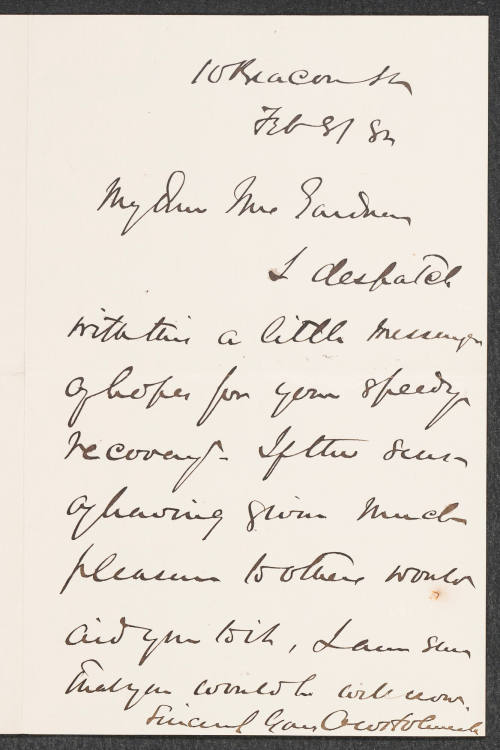 10 Beacon St
Feb 8/ 82
My Dear Mrs Gardner
I despatch
with this a little messenger
of hopes for your speedy
recovery - If the sense
of having given much
pleasure to others would
aid you to it, I am sure
that you would be well now.
Sincerely Yours O W Holmes Jr